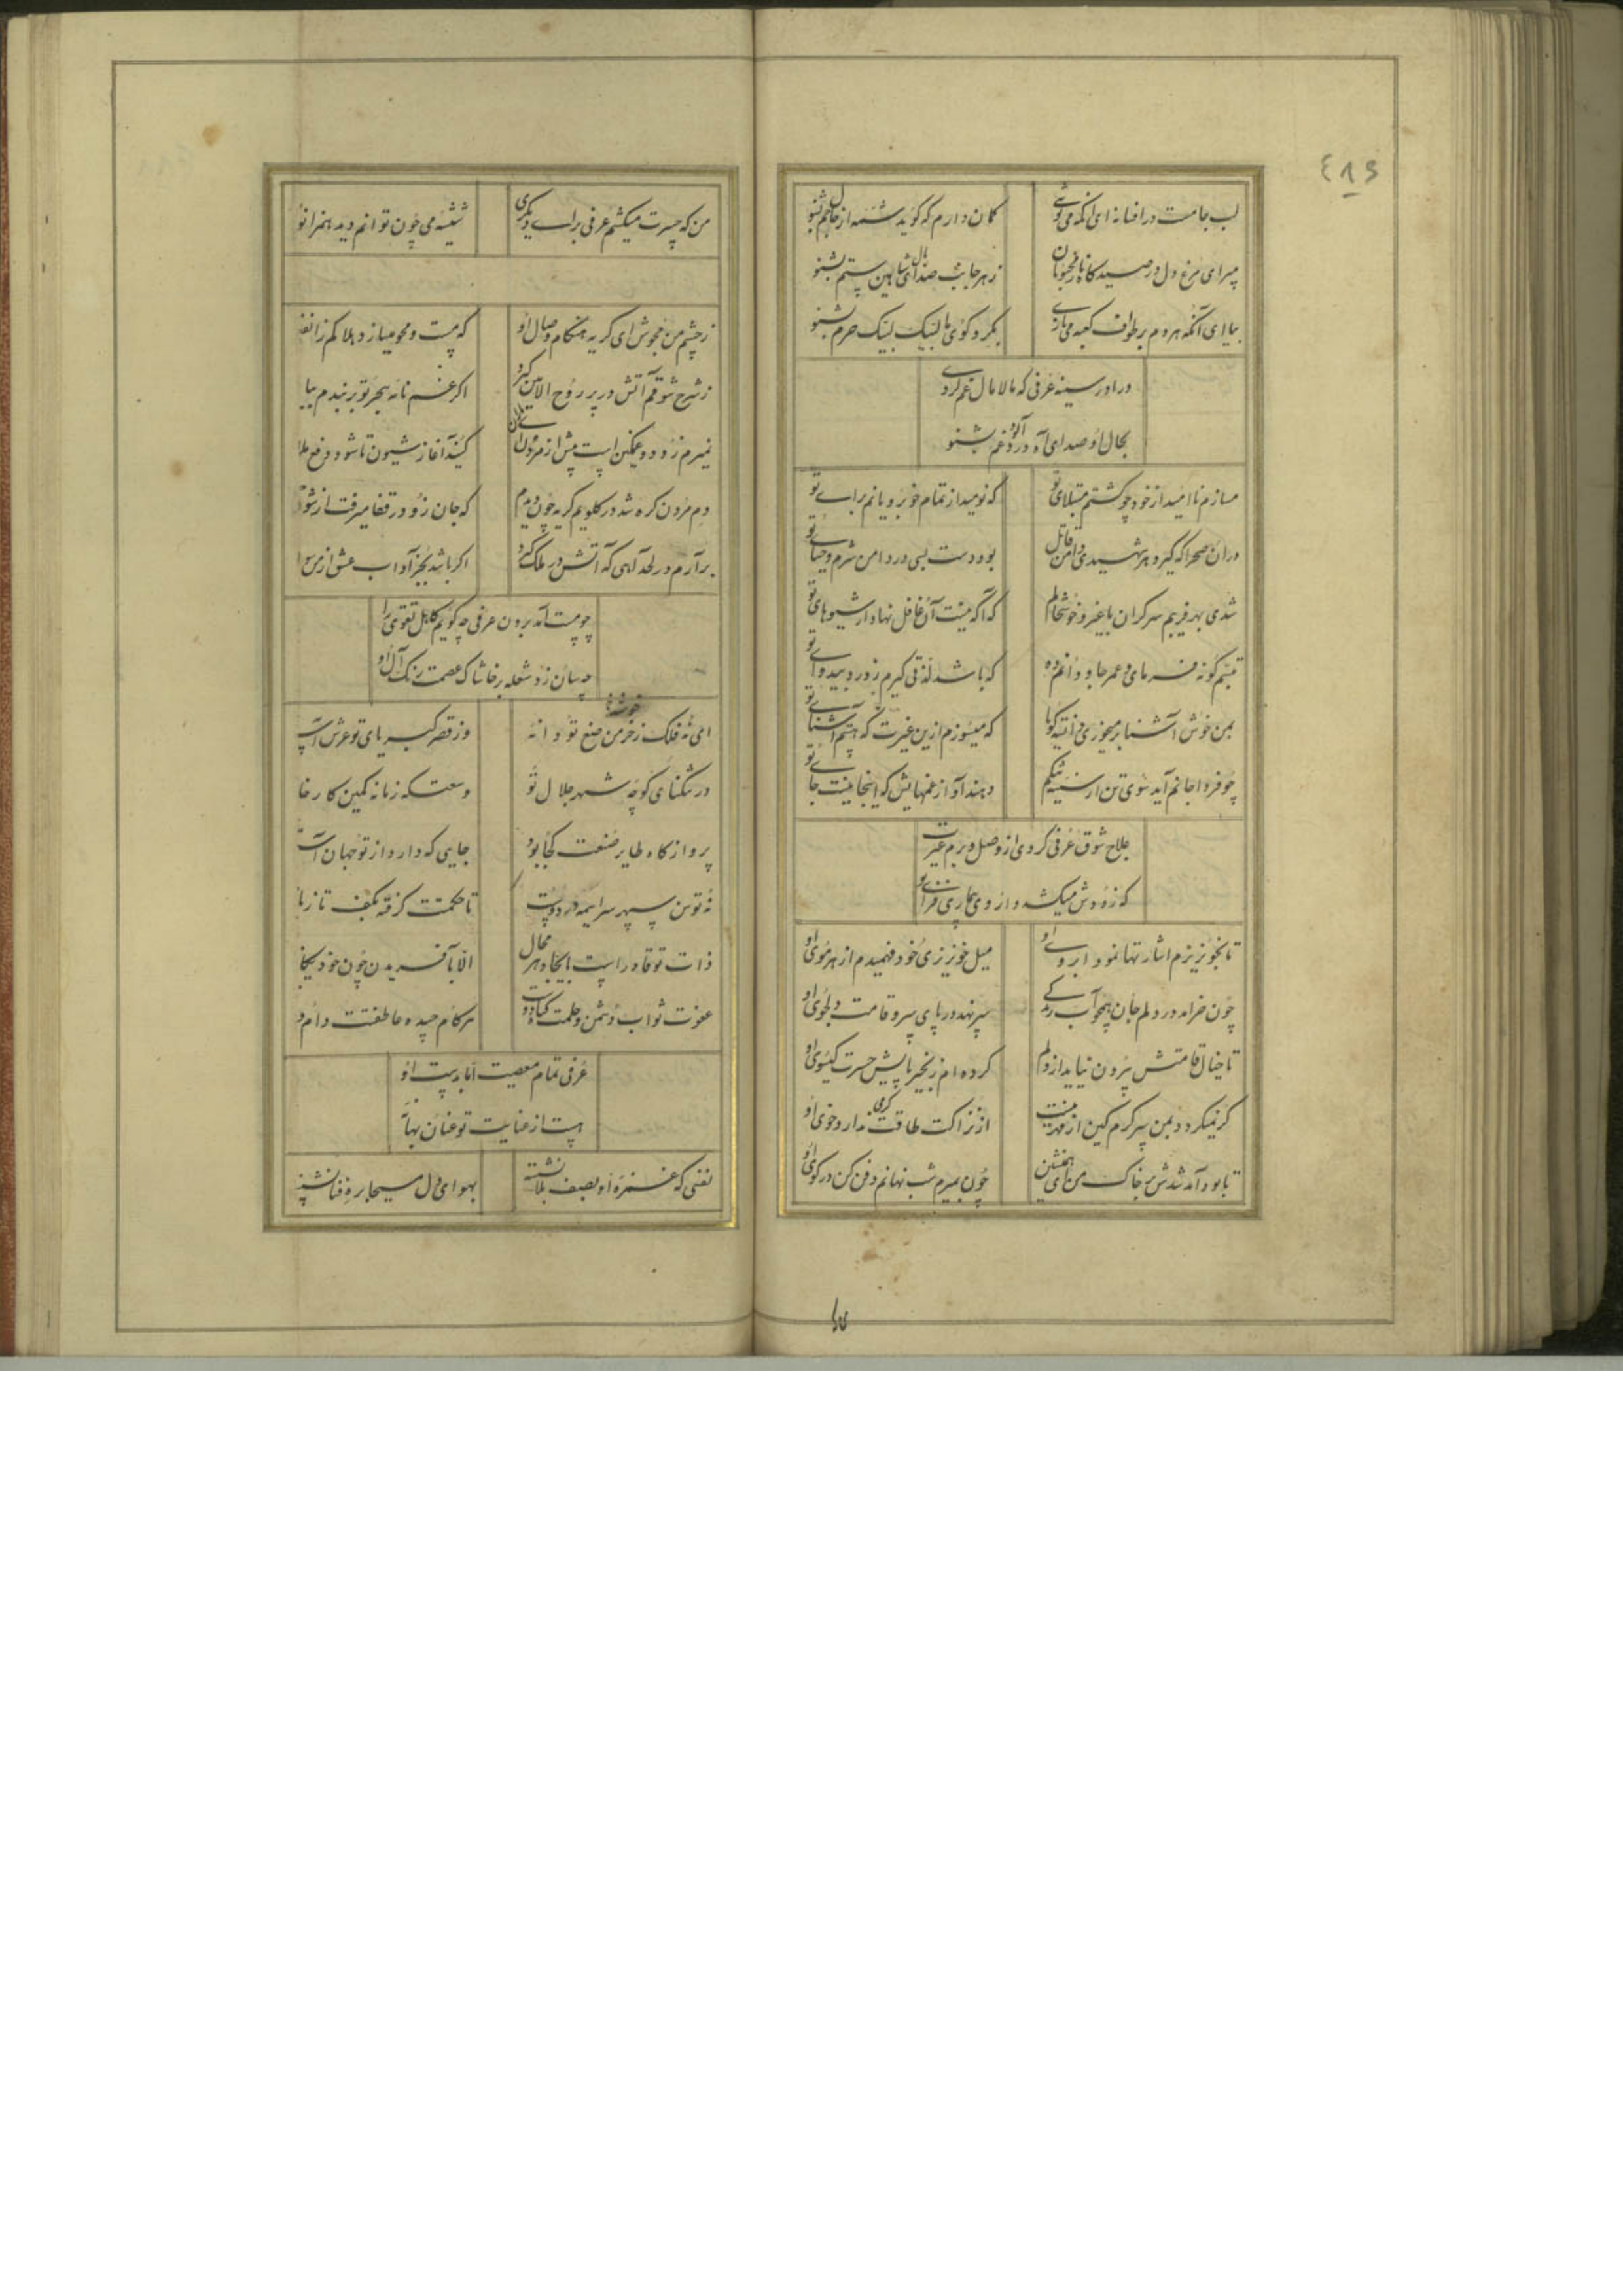 ٤٨٥
لب جامت در افسانه ای آنکه می نوشی کمان دارم که گوید شمه از حال جم بشنو
مپر ای مرغ دل در صیدگاه ناز محبوبان ز هر جانب صدای بال شاهین ستم بشنو
بیا ای آنکه هر دم بر طواف کعبه می نازی بگرد کوی ما لبیک لبیک حرم بشنو
در اور سینه عرفی که مالامال غم کردی
بحال او صدای آه دردآلود غم بشنو
مسازم ناامید از خود چو گشتم مبتلای تو که نومید از تمام خوبرویانم برای تو
در ان صحرا که گیرد هر شهیدی دامن قاتل بود دست بسی در دامن شرم و حیای تو
شدی بهر فریبم سرگران با غیر و خوشحالم که آگه نیست آن غافل نهاد از شیوهای تو
تبسم گونه فرمای و عمر جاودانم ده که باشد لذتی گیرم ز درد بیدوای تو
بمن خوش آشنا بر میخوری می زانیکه گویا که میسوزم ازین غیرت که هستم آشنای تو
چو فردا جانم آید سوی تن از سینه تنگم دهند آواز غمهایش که اینجا نیست جای تو
علاج شوق عرفی کردی از وصل و بر م غیرت
که زودش میکشد داروی بیماری فزای تو
تا بخونریزم اشارتها نمود ابروی او میل خونریزی خود فهمیدم از هر موی او
چون خرامد در دلم جان همچو آب زندگی سر نهد در پای سرو قامت دلجوی او
تا خیال قامتش بیرون نیاید از دلم کرده ام زنجیر پایش حسرت گیسوی او
گر نمیگردد بمن سرگرم کین از مهر نیست از نزاکت طاقت گرمی ندارد خوی او
تا بود آمد شدش بر خاک من ای همنشین چون بمیرم شب نهانم دفن کن در کوی او
من که حسرت میکشم عرفی برای دیگری شیشه می چون توانم دید همزانو
ز چشم من مجوش ای گریه هنگام وصال او که مست و محو میسازد
ز شرح شوقم آتش در پر روح الامین گیرد اگر نامه هجر تو بر بندم ببا
نمیرم زود و غمگین است پیش از مردن کنید آغاز شیون تا شود رفع ملا
دم مردن گره شد در گلویم گریه چون دیدم که جان زو در قفا میرفت از شو
برآرم در لحد آهی که آتش در ملک گیرد اگر باشد بجز آداب عشق از من سوا
چو مست آمد برون عرفی چه گویم کاهل تقوی را
چه سان زد شعله بر خاشاک عصمت رنگ آل او
ای نه فلک ز خرمن صنع تو دانه وز قصر کبریای تو عرش
در تنگنای کوچه شهر جلال تو وسعتکه زمانه کمین کارخا
پروازگاه طایر صنعت کجا بود جایی که دارد از تو جهان
نه توسن سپهر سراسیمه در دوست تا حکمتت گرفته بکف تازیا
ذات تو قادر است بایجاد هر محال الا بآفریدن چون خود یگا
عفوت ثواب دشمن و حلمت گناه دوست هر گام چیده عاطفتت دام و
عرفی تمام معصیت اما بدست او
هست از عنایت تو عنان بها
نفسی که غمزه او بصف بلا نشسته بهوای دل مسیحا بره فنا نشست